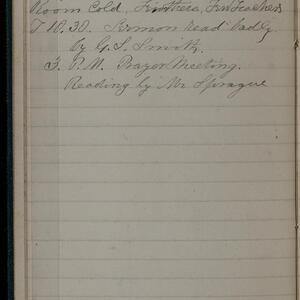 Room Cold. few Teachers
T 10.30. Sermon read badly
by G. S. Smith.
3. P. M. Prayer Meeting.
Reading by Mr Sprague